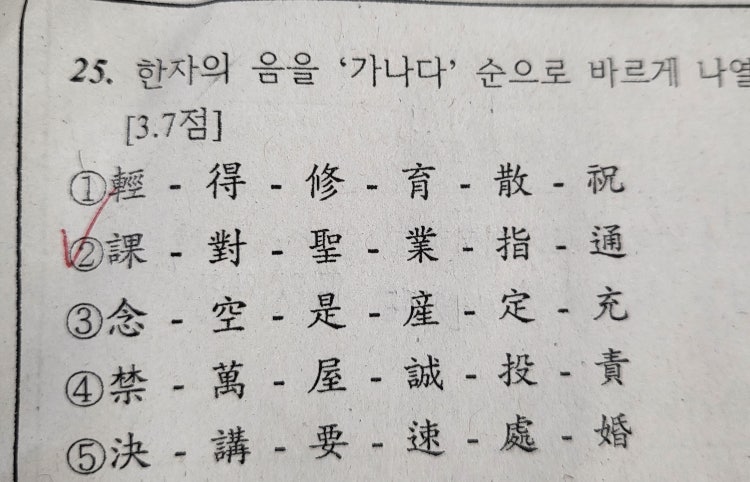 25. 한자의 음을 ‘가나다’ 순으로 바르게 나열
[3.7점]
①輕 - 得 - 修 - 育 - 散 - 祝
②課 - 對 - 聖 - 業 - 指 - 通
③念 - 空 - 是 - 産 - 定 - 充
④禁 - 萬 - 屋 - 誠 - 投 - 責
⑤決 - 講 - 要 - 速 - 處 - 婚